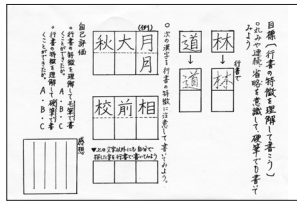 目標〔行書の特徴を理解して書こう〕
○丸みや連続、省略を意識して、硬筆でも書いてみよう
行書で
林→林
道→道
○次の漢字を行書の特徴に注意して書いてみよう。
相 前 校
(例) 月 大 秋
月
▼上の文字以外にも自分で探した字を行書で書いてみよう
自己評価
・行書の特徴を理解して毛筆で書くことができたか。 A・B・C
・行書の特徴を理解して硬筆で書くことができたか。 A・B・C
感想